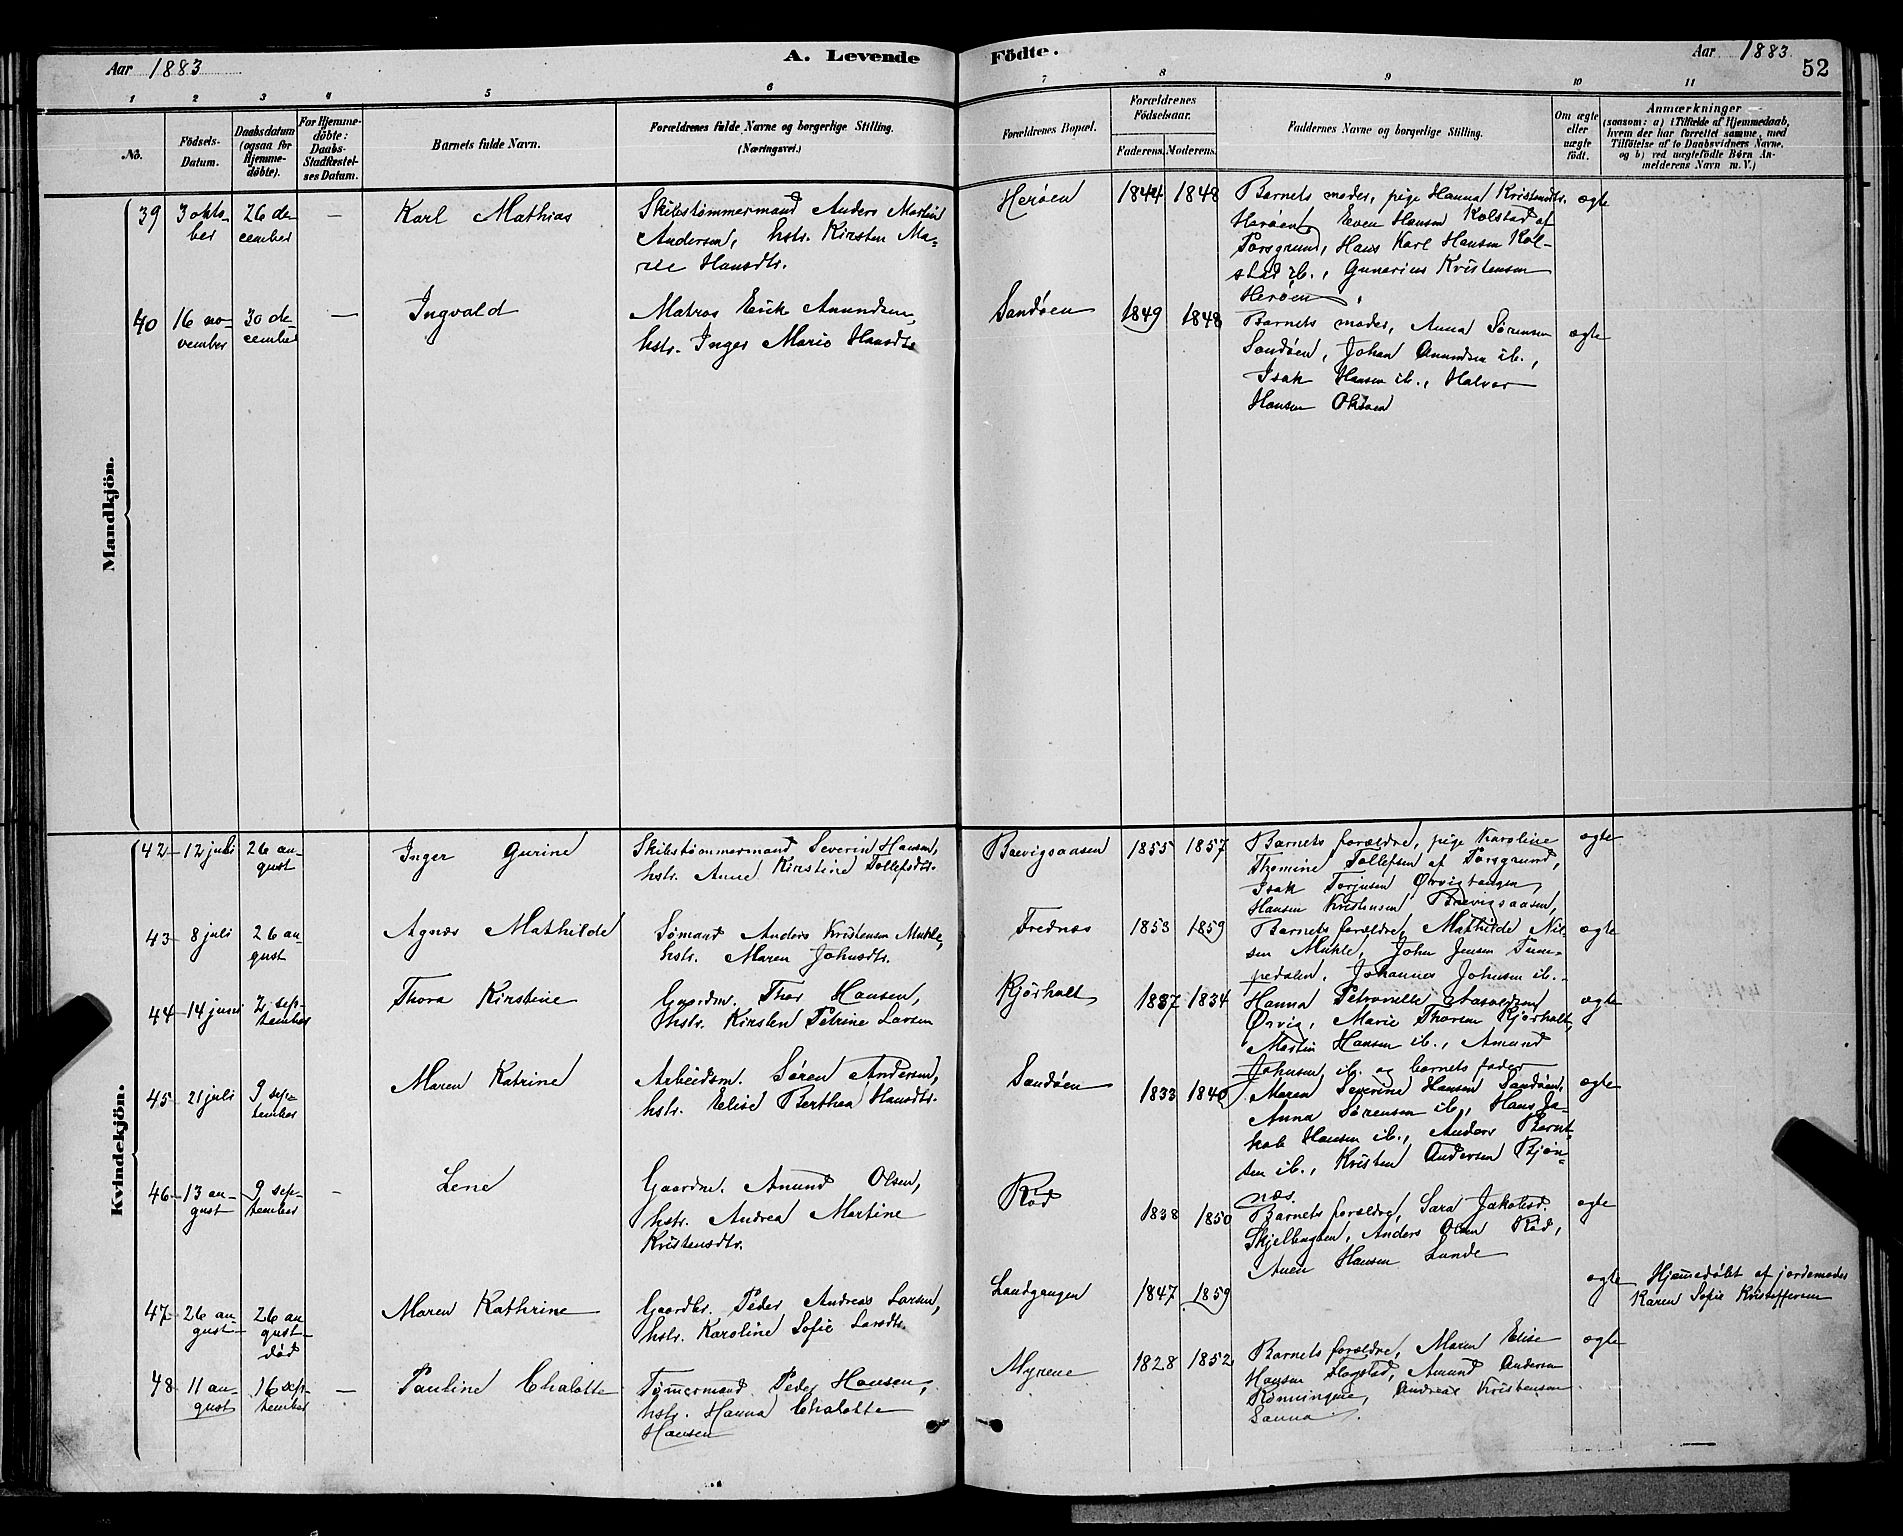 Aar 1883
A. Levende Födte.
Aar 1883
52
1 2 3 4 5 6 7 8 9 10 11
No.
Födsels-
Datum.
Daabsdatum
(ogsaa for
Hjemme-
döbte).
For Hjemme-
döbte:
Daabs-
Stadfæstel-
ses Datum.
Barnets fulde Navn.
Forældrenes fulde Navne og borgerlige Stilling.
(Næringsvei.)
Forældrenes Bopæl.
Forældrenes
Födselsaar.
Faderens. Moderens.
Faddernes Navne og borgerlige Stilling.
Om ægte
eller
uægte
födt.
Anmærkninger
(saasom: a) i Tilfælde af Hjemmedaab,
hvem der har forrettet samme, med
Tilföielse af to Daabsvidners Navne,
og b) ved uægtefödte Börn An-
melderens Navn m. V.)
Mandkjön.
39
3 okto-
ber
26 de-
cember
—
Karl Mathias
Skibstømmermand Anders Martin
Andersen, hstr. Kirsten Ma-
rie Hansdtr.
Herøen
1844 1848
Barnets moder, pige Hanna Kristensdtr.
Herøen, Even Hansen Kolstad af
Porsgrund, Hans Karl Hansen Kol-
stad ib., Gunerius Kristensen
Herøen,
ægte
40
16 no-
vember
30 de-
cember
—
Ingvald
Matros Erik Amundsen,
hstr. Inger Marie Hansdtr.
Sandøen
1849 1848
Barnets moder, Anna Sørensen
Sandøen, Johan Amundsen ib.,
Isak Hansen ib., Halvor
Hansen Oksøen
ægte
Kvindekjön.
42
12 juli
26 au-
gust
Inger Gurine
Skibstømmermand Severin Hansen,
hstr. Anne Kirstine Tollefsdtr.
Brevigsaasen
1855 1857
Barnets forældre, pige Karoline
Thomine Tollefsen af Porsgrund,
Isak Torjusen Ørvigtangen,
Hansen Kristensen Brevigsaasen,
ægte
43
8 juli
26 au-
gust
Agnes Mathilde
Sømand Anders Kristensen Muhle,
hstr. Maren Johnsdtr.
Frednæs
1853 1859
Barnets forældre, Mathilde Nil-
sen Muhle, John Jensen Tum-
pedalen, Johannes Johnsen ib.
ægte
44
14 juni
2 sep-
tember
Thora Kirstine
Gaardm. Thor Hansen,
hstr. Kirsten Petrine Larsen
Kjørholt
1837 1834
Hanna Petronelle Aasoldsen
Ørvig, Marie Thorsen Kjørholt,
Martin Hansen ib., Amund
Johnsen ib. og barnets fader
ægte
45
21 juli
9 sep-
tember
Maren Katrine
Arbeidsm. Søren Andersen,
hstr. Elise Berthea Hansdtr.
Sandøen
1833 1840
Maren Severine Hansen Sandøen,
Anna Sørensen ib., Hans Ja-
kob Hansen ib., Anders Bernt-
sen ib., Kristen Andersen Bjøn-
næs.
ægte
46
13 au-
gust
9 sep-
tember
—
Lene
Gaardm. Amund Olsen,
hstr. Andrea Martine
Kristensdtr.
Rød
1838 1850
Barnets forældre, Sara Jakobsd.
Skjelbugten, Anders Olsen Rød,
Auen Hansen Lunde
ægte
47
26 au-
gust
26 au-
gust
død
Maren Kathrine
Gaardbr. Peder Andreas Larsen,
hstr. Karoline Sofie Larsdtr.
Landgangen
1847 1859
ægte
Hjemmedøbt af jordemoder
Karen Sofie Kristoffersen
48
11 au-
gust
16 sep-
tember
—
Pauline Chalotte
Tømmermand Peder Hansen,
hstr. Hanna Chalotte
Hansen
Myrene
1828 1852
Barnets forældre, Maren Elise
Hansen Flogstad, Amund Andersen
Rønningene, Andreas Kristensen
Sanna.
ægte